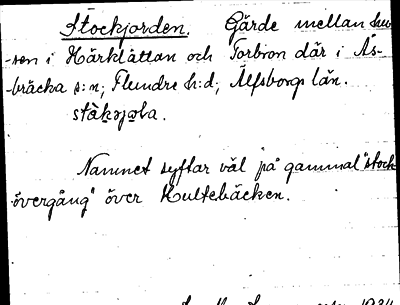 Stockjorden. Gärde mellan hu-
sen i Härklättan och Torbron där i Ås-
bräcka s:n; Flundre h:d; Älfsborgs län.
Namnet syftar väl på gammal "stock
övergång" över Hultebäcken.